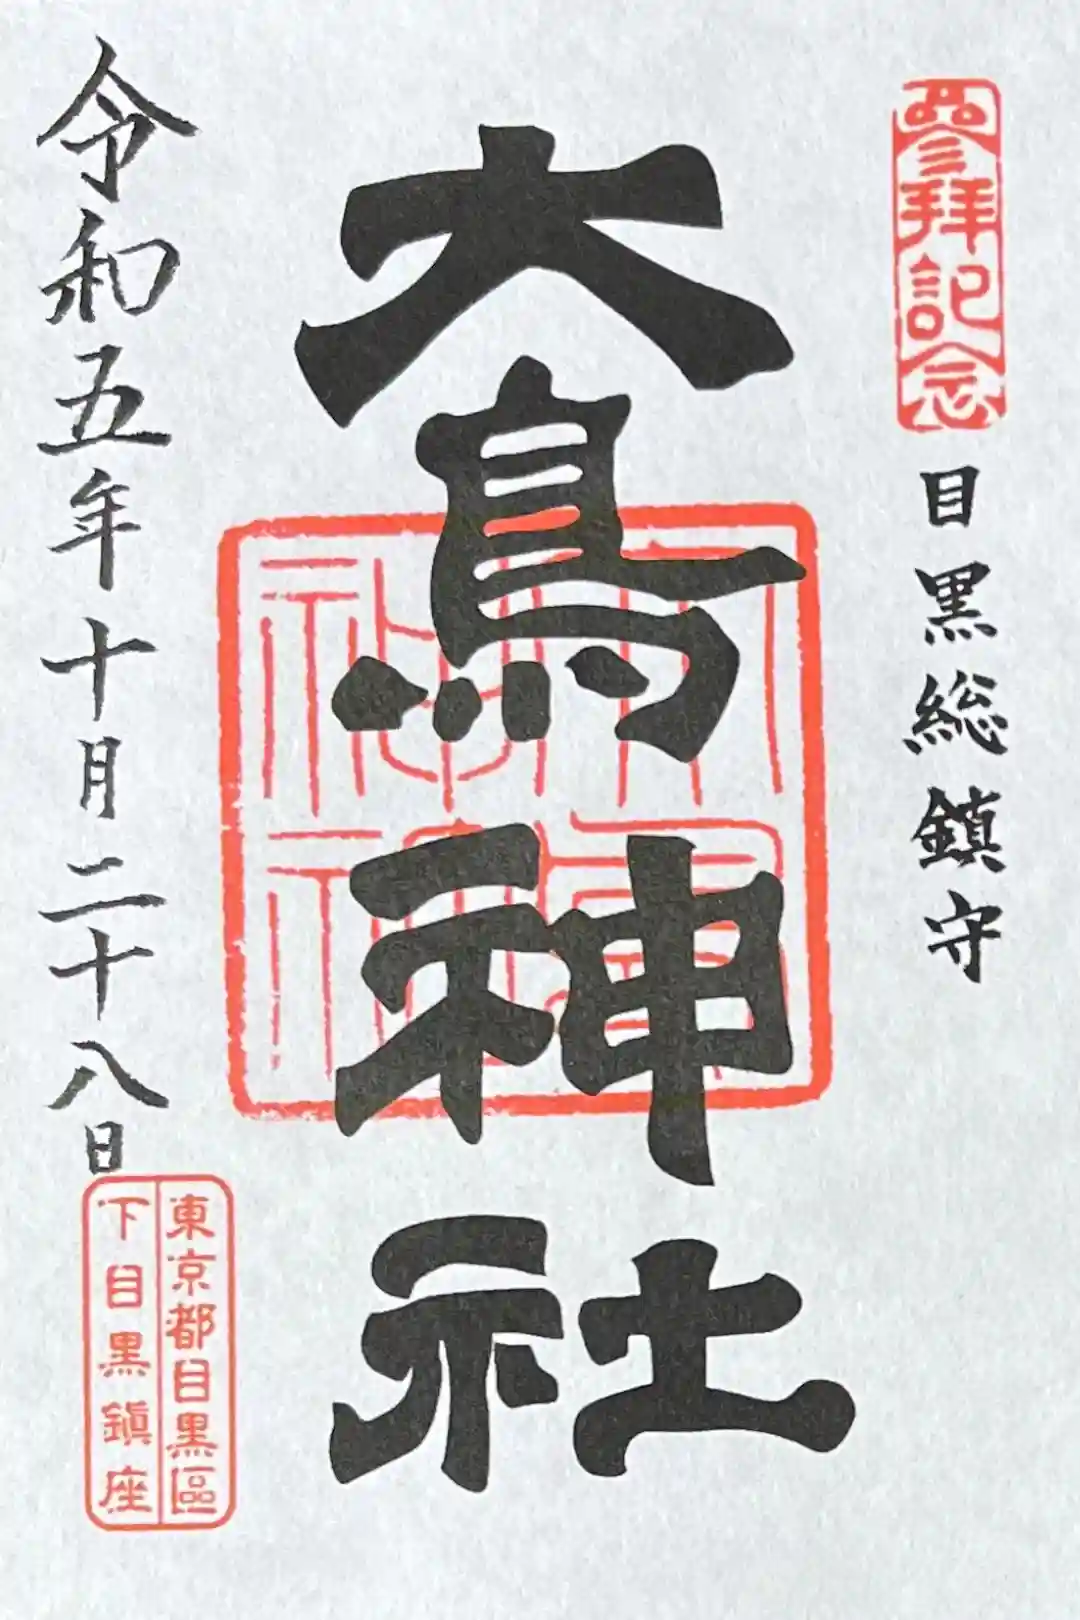 參拜記念
目黒総鎮守
大鳥神社
大鳥神社
令和五年十月二十八日
東京都目黒區
下目黒鎮座